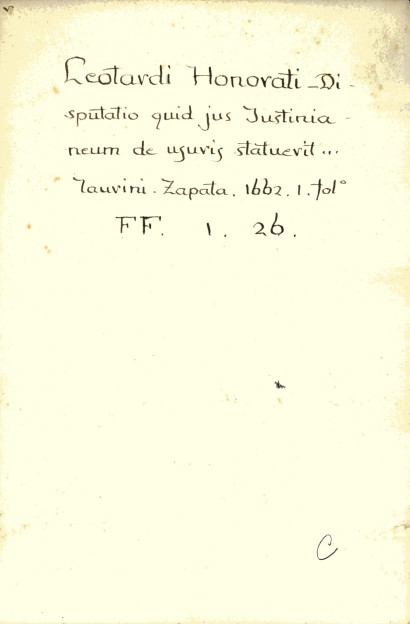 Leotardi Honorati - Di-
sputatio quid jus Justinia-
neum de usuris statuerit ...
Taurini. Zapata. 1662. 1. fol°
FF. 1. 26.
C